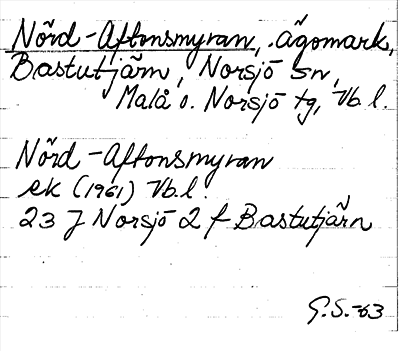 Nörd-Aftonsmyran, ägomark,
Bastutjärn, Norsjö sn,
Malå o. Norsjö tg, Vb.l.
Nörd-Aftonsmyran
ek (1961) Vb.l.
23 J Norsjö 2 f Bastutjärn
G.S.-63